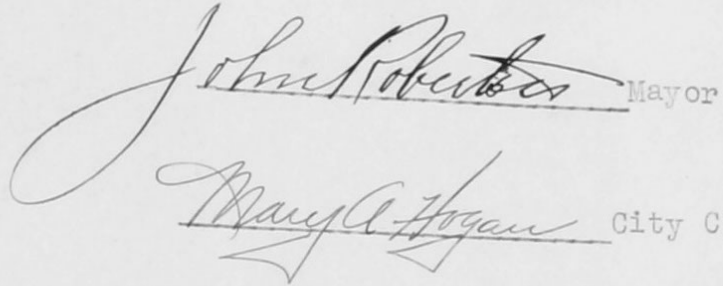 John Roberts Mayor
Mary A. Hogan City C